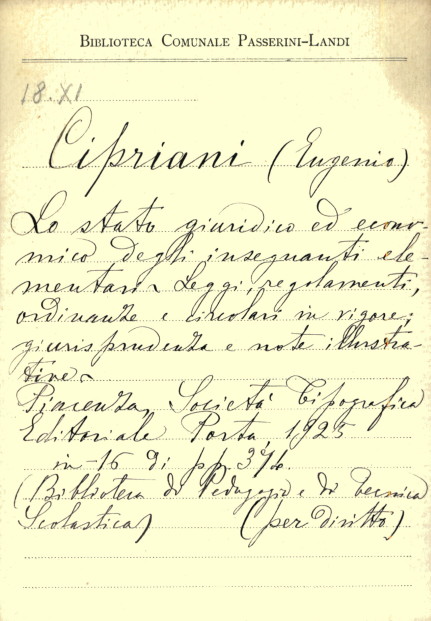 BIBLIOTECA COMUNALE PASSERINI-LANDI
18.XI
Cipriani (Eugenio)
Lo stato giuridico ed econo-
mico degli insegnanti ele-
mentari. Leggi, regolamenti,
ordinanze e circolari in vigore;
giurisprudenza e note illustra-
tive.
Piacenza, Società Tipografica
Editoriale Porta, 1925
in-16 di pp.
(Biblioteca di Pedagogia e di Tecnica
Scolastica) (per diritto)